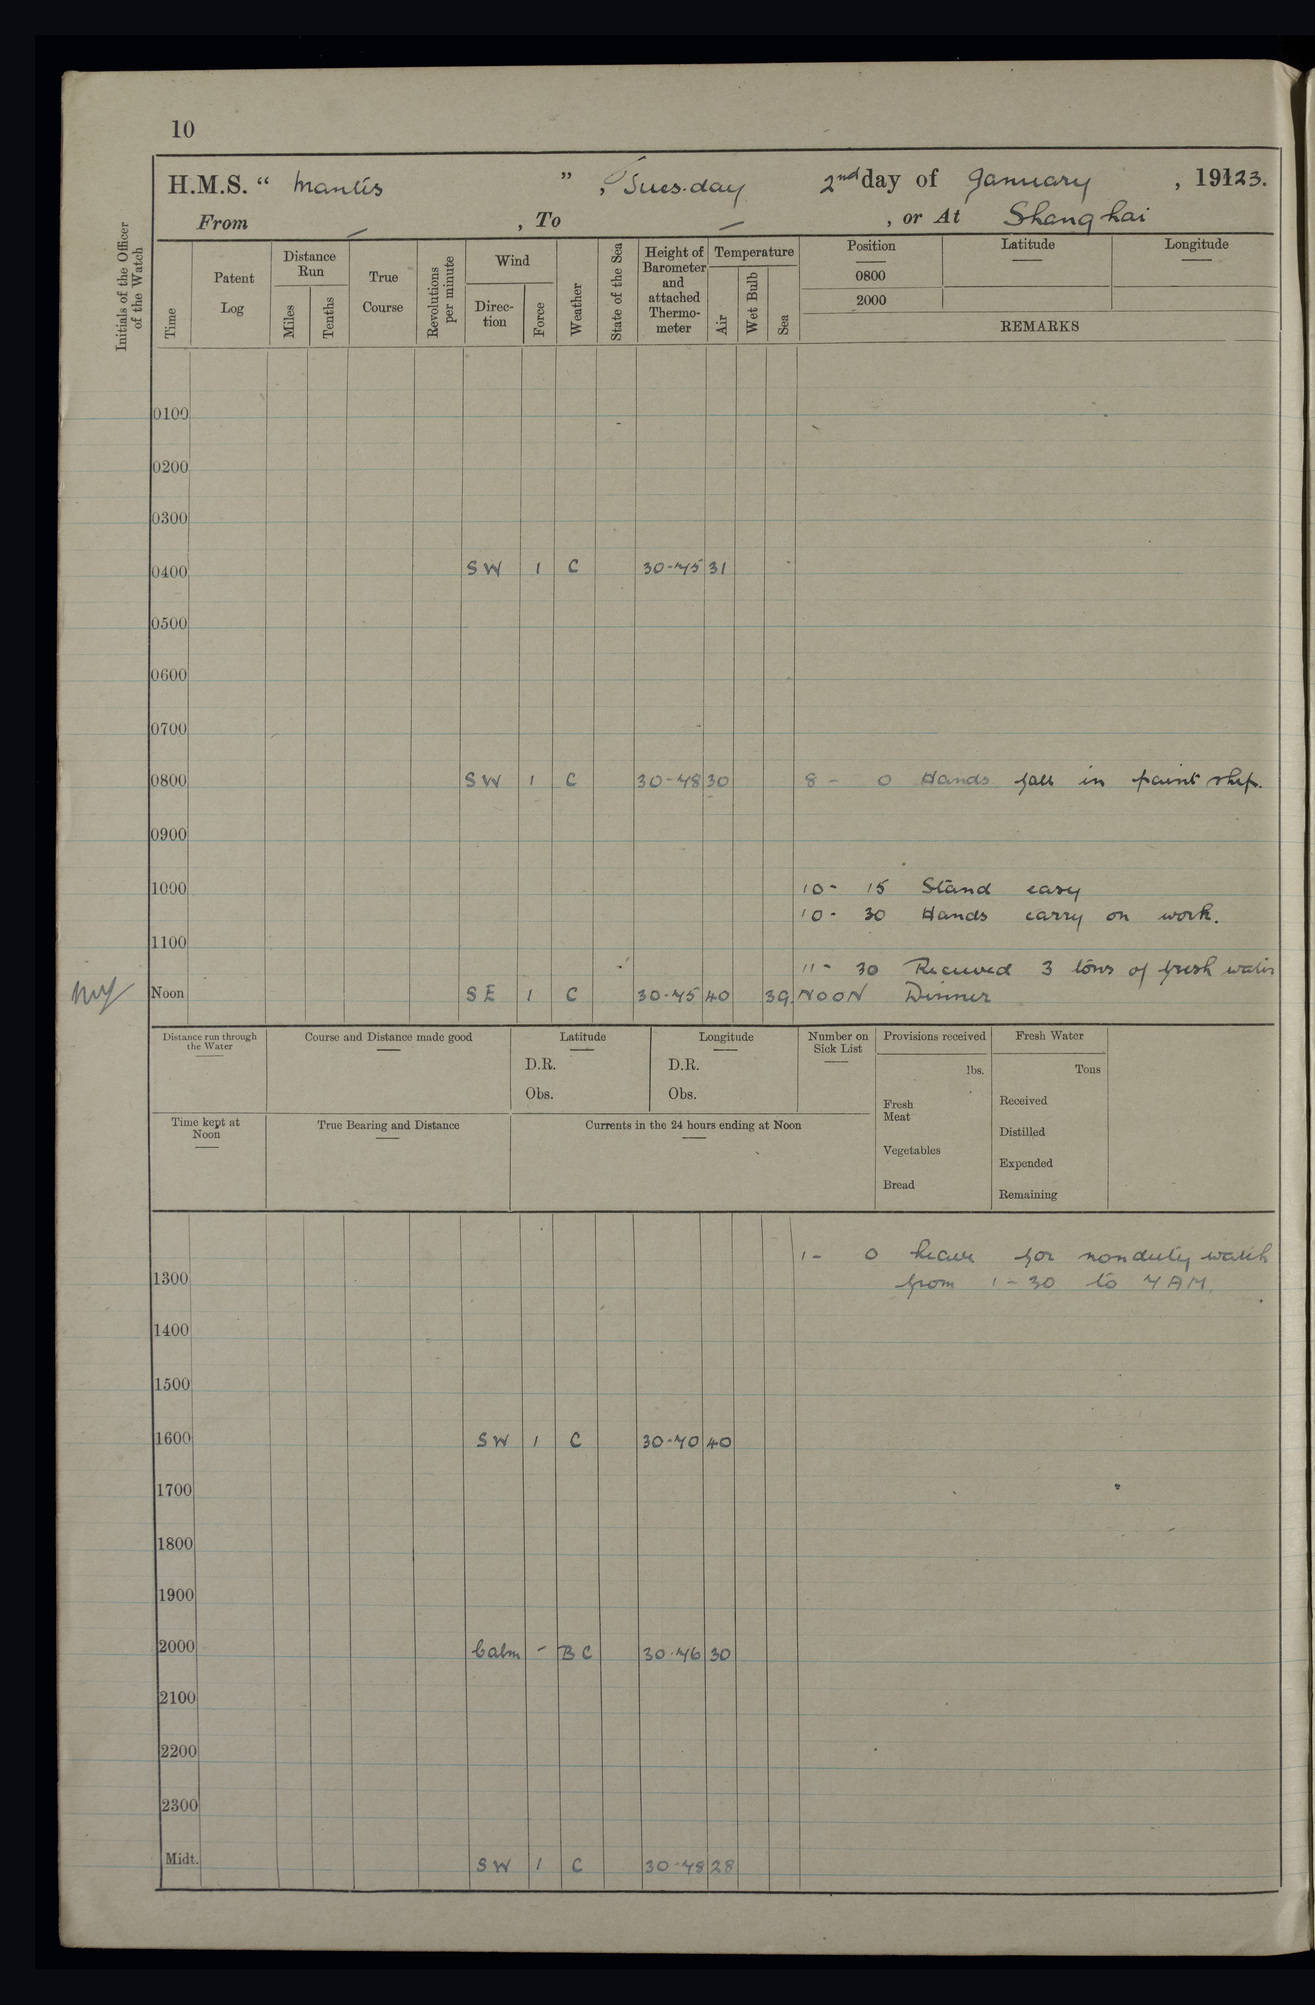 10
H.M.S. “ Mantis ” , Tuesday 2nd day of January , 19123.
From — , To — , or At Shanghai
Initials of the Officer of the Watch
Time
Patent Log
Distance Run
Miles
Tenths
True Course
Revolutions per minute
Wind
Direc-tion
Force
Weather
State of the Sea
Height of Barometer and attached Thermo-meter
Temperature
Air
Wet Bulb
Sea
Position
0800
2000
Latitude
Longitude
REMARKS
0100
0200
0300
0400 SW 1 C 30-75 31
0500
0600
0700
0800 SW 1 C 30-78 30 8 - 0 Hands fall in paint ship.
0900
1000 10- 15 Stand easy
10- 30 Hands carry on work.
1100
11- 30 Received 3 tons of fresh water
Noon SE 1 C 30-75 40 39. NOON Dinner
Distance run through the Water
Course and Distance made good
Latitude
D.R.
Obs.
Longitude
D.R.
Obs.
Number on Sick List
Provisions received
lbs.
Fresh Meat
Vegetables
Bread
Fresh Water
Tons
Received
Distilled
Expended
Remaining
Time kept at Noon
True Bearing and Distance
Currents in the 24 hours ending at Noon
1- 0 Leave for nonduty watch
1300 from 1-30 to 7 AM.
1400
1500
1600 SW 1 C 30-70 40
1700
1800
1900
2000 Calm - BC 30-76 30
2100
2200
2300
Midt. SW 1 C 30-78 28